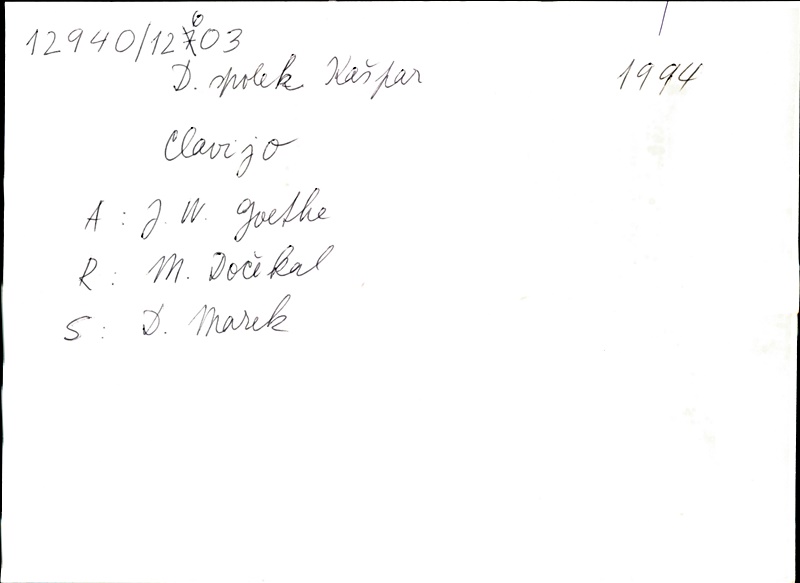 12940/12603
D. spolek Kašpar 1994
Clavijo
A: J. W. Goethe
R: M. Dočekal
S: D. Marek